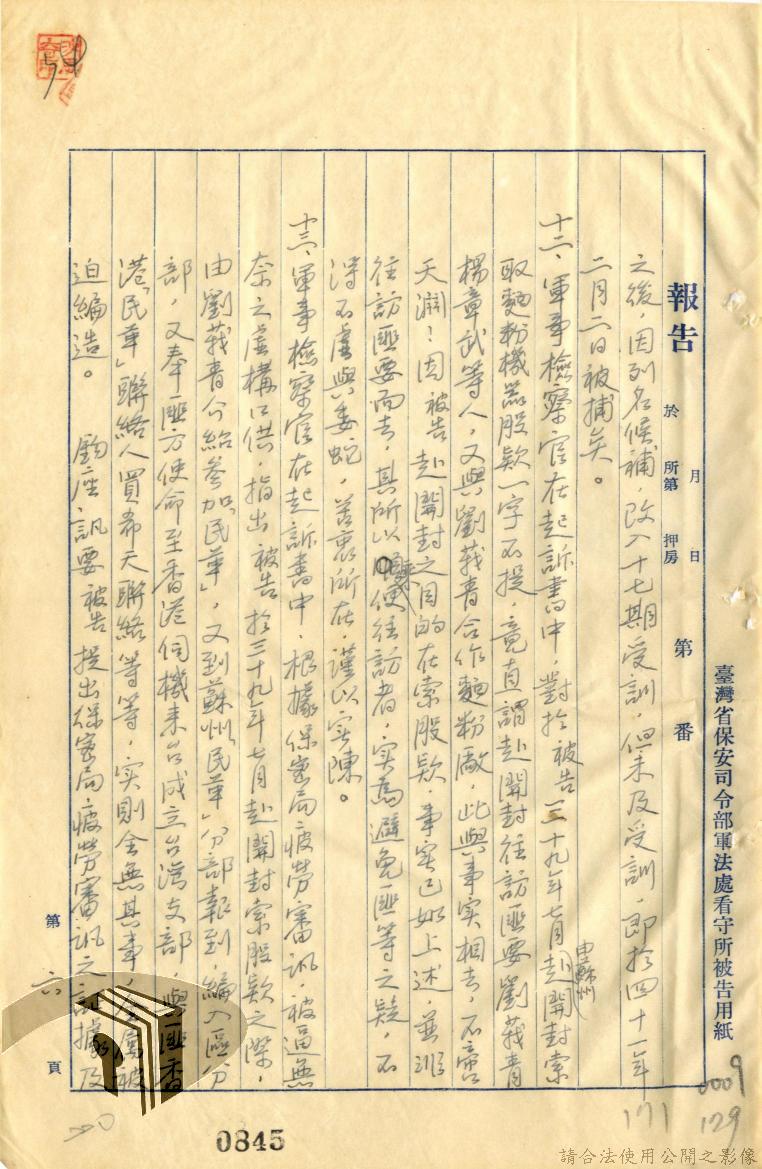 臺灣省保安司令部軍法處看守所被告用紙
報告 於 月 日 所第 押房 第 番
之後，因列名候補，改入十七期受訓，但未及受訓，即於四十一年
二月二日被捕矣。
十二、軍事檢察官在起訴書中，對於被告三十九年七月由蘇州赴開封索
取麵粉機器股款一字不提，竟直謂赴開封往訪匪要劉莪青
楊章武等人，又與劉莪青合作麵粉廠，此與事实相去，不啻
天淵！因被告赴開封之目的在索股款，事实已如上述，並非
往訪匪要而去，其所以順便往訪者，实為避免匪等之疑，不
得不虛與委蛇，苦衷所在，謹以实陳。
十三、軍事檢察官在起訴書中，根據保密局疲勞審訊，被逼無
奈之虛構口供，指出被告於三十九年七月赴開封索股款之際，
由劉莪青介紹參加「民革」，又到蘇州「民革」分部報到，編入區分
部，又奉匪方使命至香港伺機來台成立台灣支部，與匪香
港「民革」聯絡人買希天聯絡等等，实則全無其事，全屬被
迫編造。 鈞座訊要被告提出保密局疲勞審訊之証據及
第 六 頁
0009
129
171
0845
請合法使用公開之影像